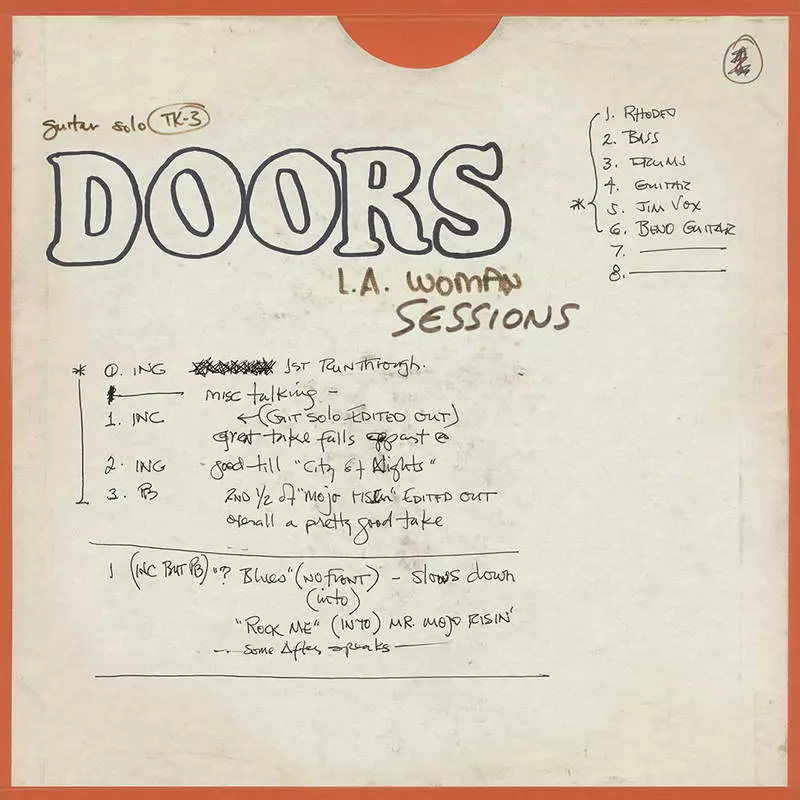 guitar solo TK-3
DOORS
L.A. WOMAN
SESSIONS
1. RHODEO
2. BASS
3. DRUMS
4. GUITAR
5. JIM VOX
6. BEND GUITAR
7.
8.
* 0. INC 1ST RUNTHROUGH.
misc talking -
1. INC ←(GIT SOLO EDITED OUT)
great take falls apart @
2. INC good till "City of Nights"
3. PB 2ND 1/2 of "MOJO RISIN" EDITED OUT
overall a pretty good take
1 (INC BUT PB) "? Blues" (NO FRONT) - slows down
(into)
"ROCK ME" (INTO) MR. MOJO RISIN'
- Some After speaks -